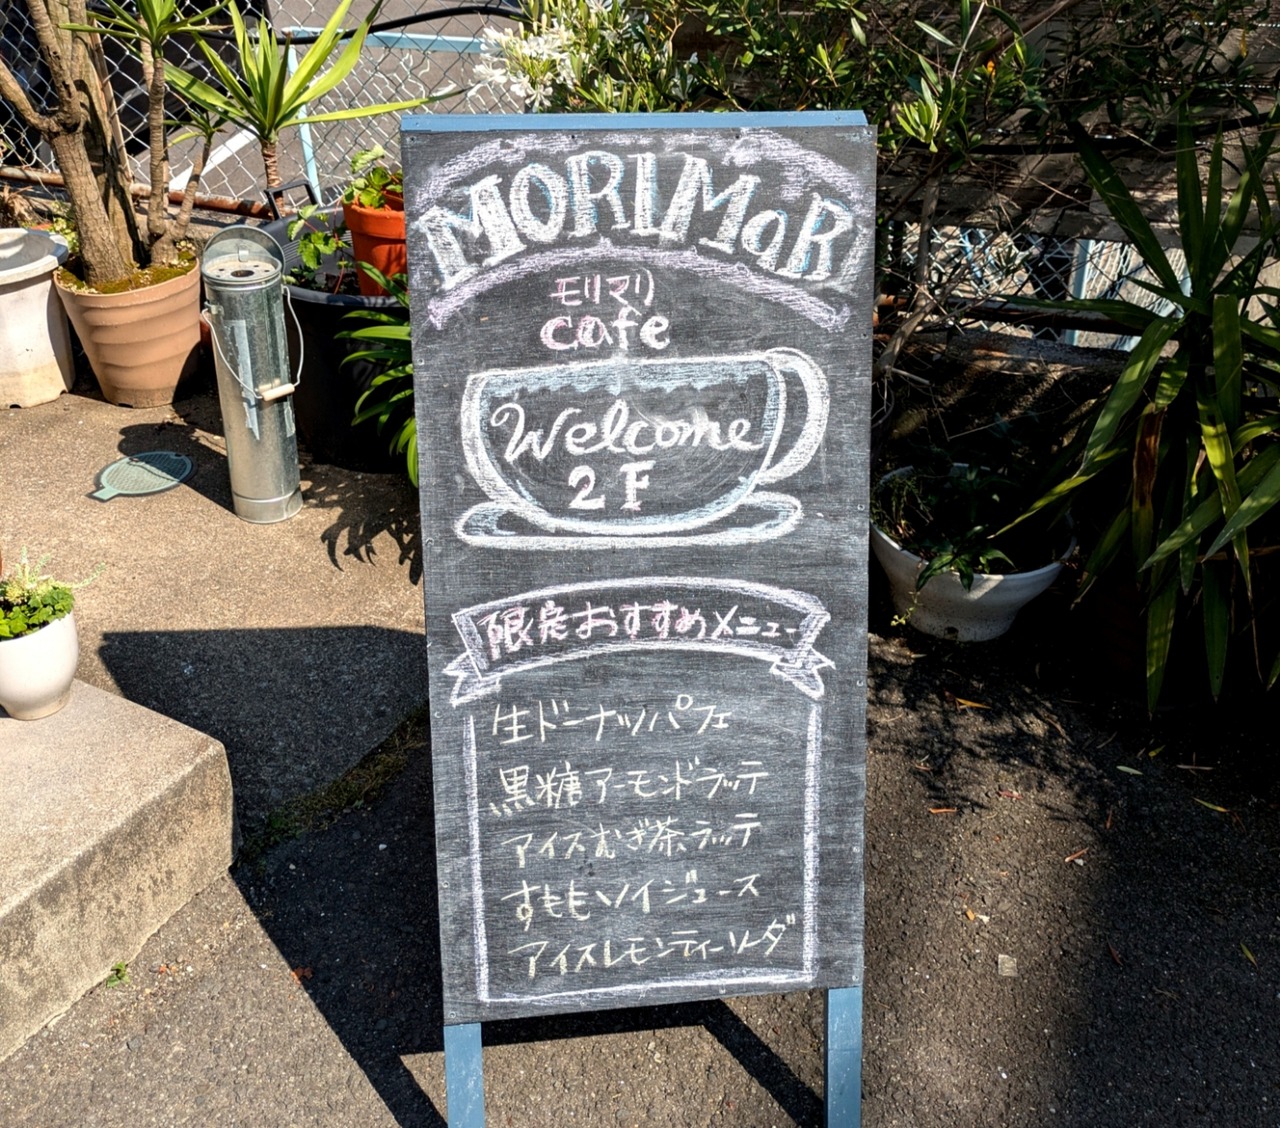 MORIMAR
モリマリ
cafe
Welcome
2F
限定おすすめメニュー
生ドーナツパフェ
黒糖アーモンドラッテ
アイスむぎ茶ラッテ
すももソイジュース
アイスレモンティーソーダ